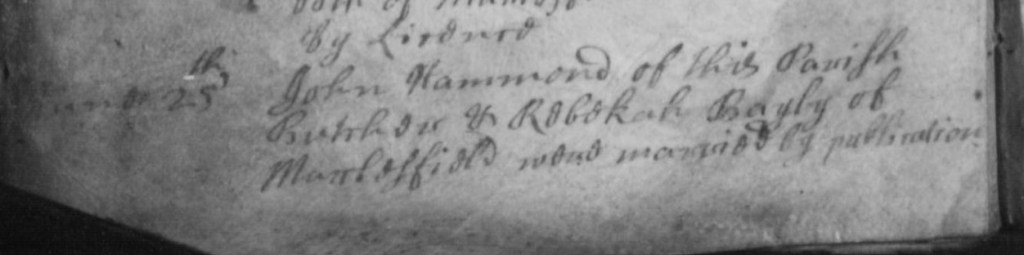 both of
By Licence
June 25th John Hammond of this Parish
Butcher & Rebekah Bayly of
Macklesfield were married by publication